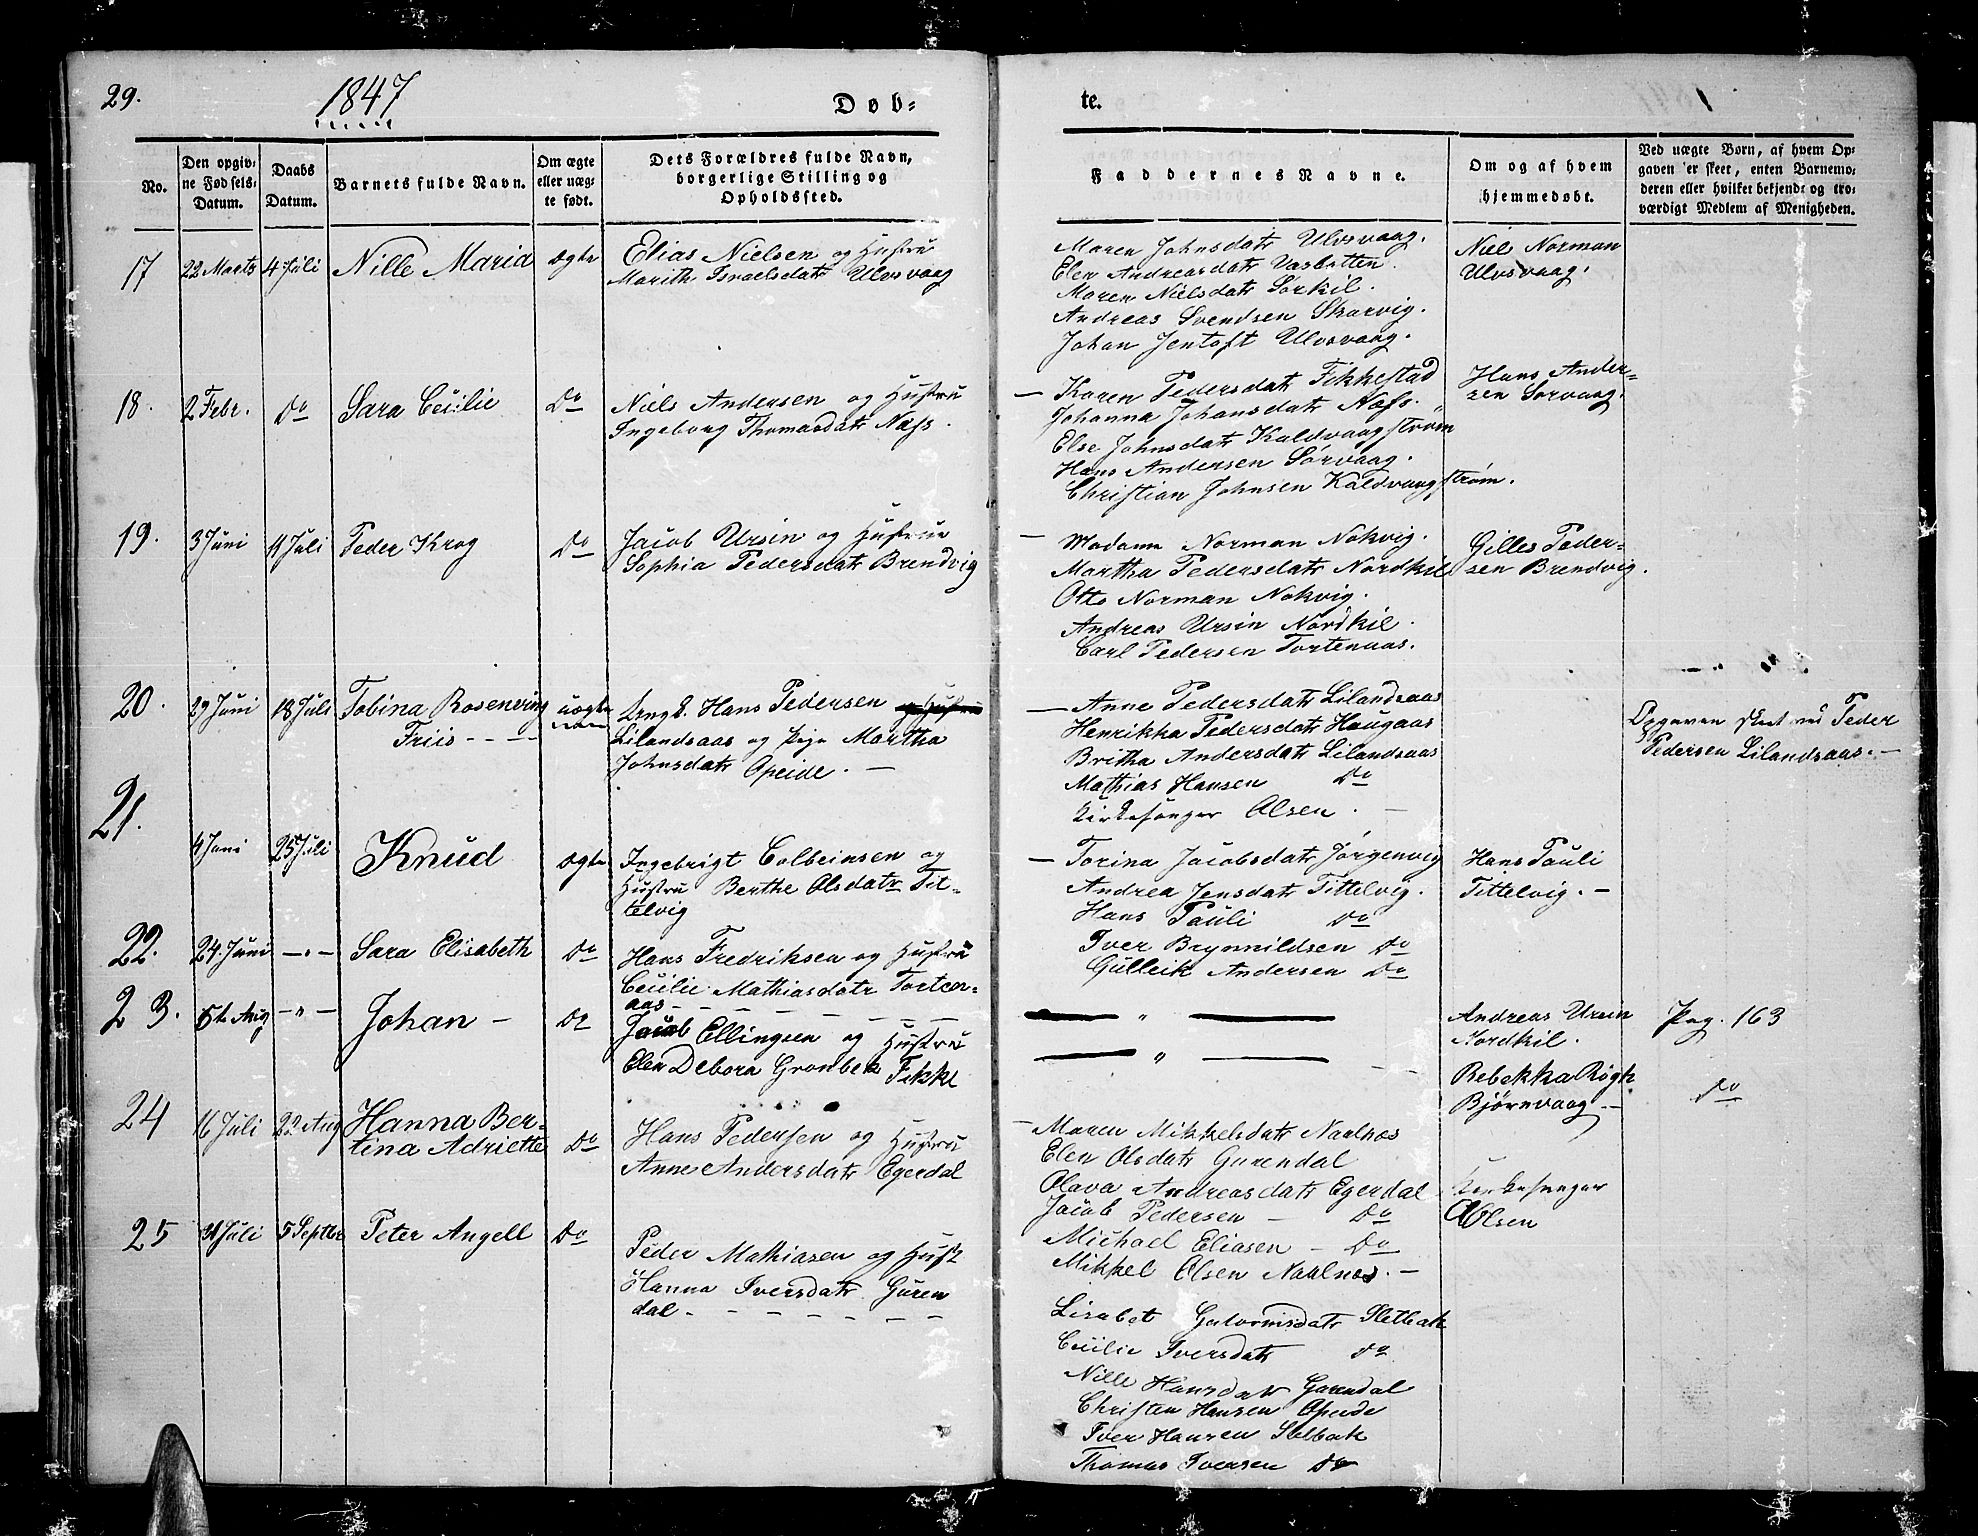 29.
1847
Døb=
te.
No.
Den opgiv=
ne Fødsels=
Datum.
Daabs
Datum.
Barnets fulde Navn.
Om ægte
eller uæg=
te født.
Dets Forældres fulde Navn,
borgerlige Stilling og
Opholdssted.
Faddernes Navne.
Om og af hvem
hjemmedøbt.
Ved uægte Børn, af hvem Op=
gaven er skeet, enten Barnemo=
deren eller hvilket bekjendt og tro=
værdigt Medlem af Menigheden.
17 22 Marts 4 Juli Nille Maria ægte
Elias Nielsen og Hustru
Marith Israelsdatr Ulvsvaag
Maren Johnsdatr Ulvsvaag.
Elen Andreasdatr Vasbotten.
Maren Nielsdatr Sørkil.
Andreas Svendsen Skarvig.
Johan Jentoft Ulvsvaag.
Niels Norman
Ulvsvaag.
18. 2 Febr. Do Sara Cecilie Do
Niels Andersen og Hustru
Ingeborg Thomasdatr Næss.
— Karen Pedersdatr Fikkestad
Johanna Johansdatr Næss.
Else Johnsdatr Kaldvaagstrøm
Hans Andersen Sørvaag.
Christian Johnsen Kaldvaagstrøm.
Hans Ander=
sen Sørvaag.
19. 3 Juni 11 Juli Peder Krog Do
Jacob Ursin og Hustrue
Sophia Pedersdatr Brendvig
— Madame Norman Nokvig.
Martha Pedersdatr Nordkil
Otto Norman Nokvig.
Andreas Ursin Nordkil.
Carl Pedersen Tortenaas.
Gilles Peder=
sen Brendvig.
20. 29 Juni 18 Juli Tobina Rosenving
Friis - - - -
uægte
Ungk. Hans Pedersen og Hustru
Lilandsaas og Pige Martha
Johnsdatr Opeide. —
— Anne Pedersdatr Lilandsaas
Henrikka Pedersdatr Haugaas
Britha Andersdatr Lilandsaas
Mathias Hansen Do
Kirkesanger Olsen. —
Opgaven skeet ved Peder
Pedersen Lilandsaas. —
21.
4 Juni 25 Juli Knud ægte
Ingebrigt Colbeinsen og
Hustru Berthe Olsdatr Tit=
telvig
— Torina Jacobsdatr Jørgenvig
Andrea Jensdatr Tittelvig.
Hans Pauli Do
Iver Brynnildsen Do
Gulleik Andersen Do
Hans Pauli
Tittelvig. —
22. 24. Juni — " — Sara Elisabeth Do
Hans Fredriksen og Hustru
Cecilie Mathiasdatr Torten=
aas — — — — — —
— " —
Andreas Ursin
Nordkil.
Pag. 163
23. 5te Aug — " — Johan — Do
Jacob Ellingsen og Hustru
Elen Debora Grønbek Fikke
— " —
Rebekka Røgh
Bjørnvaag —
Do
24 16 Juli 22 Aug Hanna Ber=
tina Adriette Do
Hans Pedersen og Hustru
Anne Andersdatr Egerdal
— Maren Mikkelsdatr Naalnæs
Elen Olsdatr Gurendal
Olava Andreasdatr Egerdal
Jacob Pedersen — Do
Michael Eliasen — Do
Mikkel Olsen Naalnæs. —
Kirkesanger
Olsen
25 31 Juli 5 Septbr Peter Angell Do
Peder Mathiasen og Hust
Hanna Iversdatr Guren
dal. — — — — — —
Lisabet Guttormsdatr Sletbak
Cecilie Iversdatr Do
Nille Hansdatr Gurendal
Christen Hansen Opeide
Iver Hansen Sletbak
Thomas Iversen Do